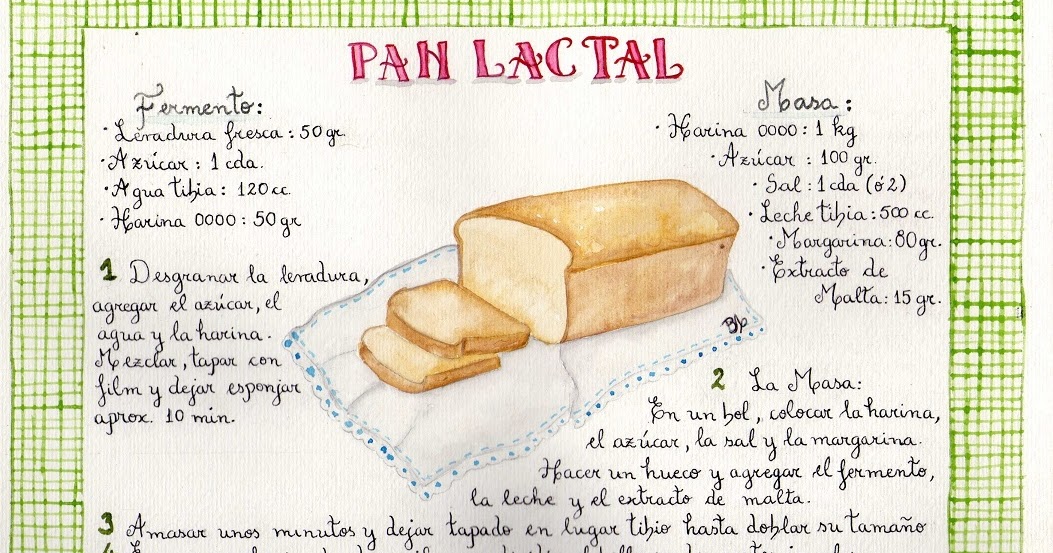 PAN LACTAL
Fermento:
· Levadura fresca : 50 gr.
· Azúcar : 1 cda.
· Agua tibia : 120 cc.
· Harina 0000 : 50 gr
Masa :
· Harina 0000 : 1 kg
· Azúcar : 100 gr.
· Sal : 1 cda (ó 2)
· Leche tibia : 500 cc.
· Margarina : 80 gr.
· Extracto de
Malta : 15 gr.
1 Desgranar la levadura,
agregar el azúcar, el
agua y la harina.
Mezclar, tapar con
film y dejar esponjar
aprox. 10 min.
2 La Masa:
En un bol, colocar la harina,
el azúcar, la sal y la margarina.
Hacer un hueco y agregar el fermento,
la leche y el extracto de malta.
3 Amasar unos minutos y dejar tapado en lugar tibio hasta doblar su tamaño